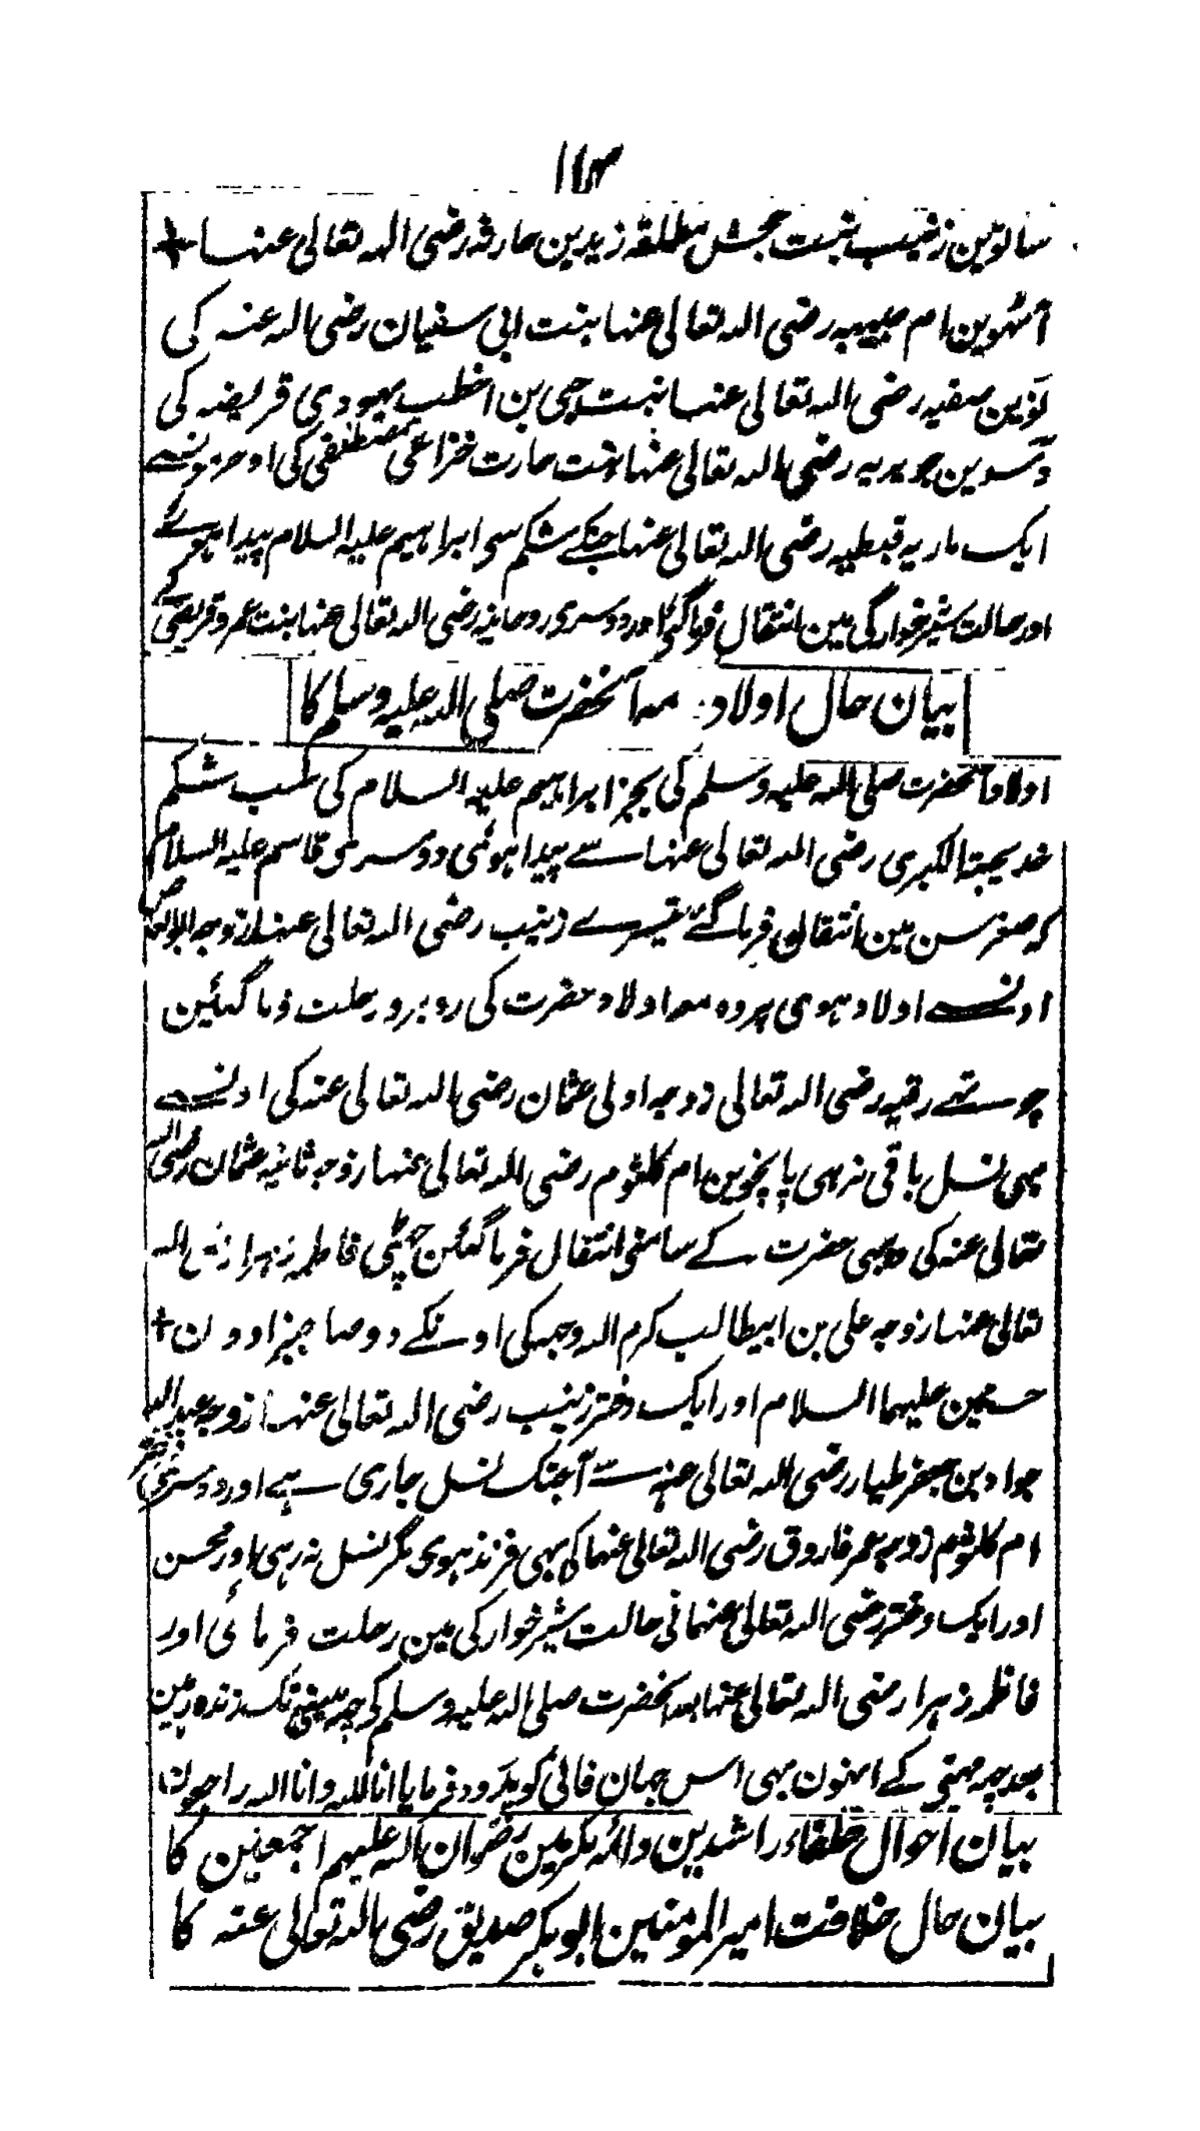 ساتوین زینب بنت جحش مطلقہ زیدبن حارثہ رضی اللہ تعالی عنہا +
آٹہوین ام حبیبہ رضی اللہ تعالی عنہا بنت ابی سفیان رضی اللہ عنہ کی
نوین صفیہ رضی اللہ تعالی عنہا بنت حیی بن اخطب یہودی قریضہ کی
دسوین جویریہ رضی اللہ تعالی عنہا بنت حارث خزاعی مصطلقی کی اور
ایک ماریہ قبطیہ رضی اللہ تعالی عنہا جنکے شکم سی ابراہیم علیہ السلام پیدا ہوئے
اور حالت شیرخوارگی مین انتقال فرماگئی اور دوسری ریحانہ رضی اللہ تعالی عنہا بنت عمرو قریضی کے
بیان حال اولاد آنحضرت صلی اللہ علیہ وسلم کا
اولاد آنحضرت صلی اللہ علیہ وسلم کی بجز ابراہیم علیہ السلام کی سب شکم
خدیجۃ الکبری رضی اللہ تعالی عنہا سے پیدا ہوئی دوسری قاسم علیہ السلام
کہ صغر سن مین انتقال فرماگئے تیسرے زینب رضی اللہ تعالی عنہا زوجہ ابو العاص
اونسے اولاد ہوی پر وہ معہ اولاد حضرت کی روبرو رحلت فرما گئین
چوتھے رقیہ رضی اللہ تعالی زوجہ اولی عثمان رضی اللہ تعالی عنہ کی اونسے
بہی نسل باقی نہ رہی پانچوین ام کلثوم رضی اللہ تعالی عنہا زوجہ ثانیہ عثمان رضی اللہ
تعالی عنہ کی وہ بہی حضرت کے سامنی انتقال فرما گئین چہٹی فاطمہ زہرا رضی اللہ
تعالی عنہا زوجہ علی بن ابیطالب کرم اللہ وجہہ کی اونکے دو صاحبزادوں +
حسنین علیہما السلام اور ایک دختر زینب رضی اللہ تعالی عنہا زوجہ عبد اللہ
جواد بن جعفر طیار رضی اللہ تعالی عنہ سے آجتک نسل جاری ہے اور دوسری دختر
ام کلثوم زوجہ عمر فاروق رضی اللہ تعالی عنہما کی بہی فرزند ہوی مگر نسل نہ رہی اور محسن
اور ایک دختر رضی اللہ تعالی عنہما نی حالت شیرخوارگی مین رحلت فرمائی اور
فاطمہ زہرا رضی اللہ تعالی عنہا بعد آنحضرت صلی اللہ علیہ وسلم کی چہ مہینی تک زندہ رہین
بعد چہ مہینی کے انہون بہی اس جہان فانی کو پدرود فرمایا انا للہ وانا الیہ راجعون
بیان احوال خلفاء راشدین وائمہ مکرمین رضوان اللہ علیہم اجمعین کا
بیان حال خلافت امیرالمومنین ابوبکر صدیق رضی اللہ تعالی عنہ کا